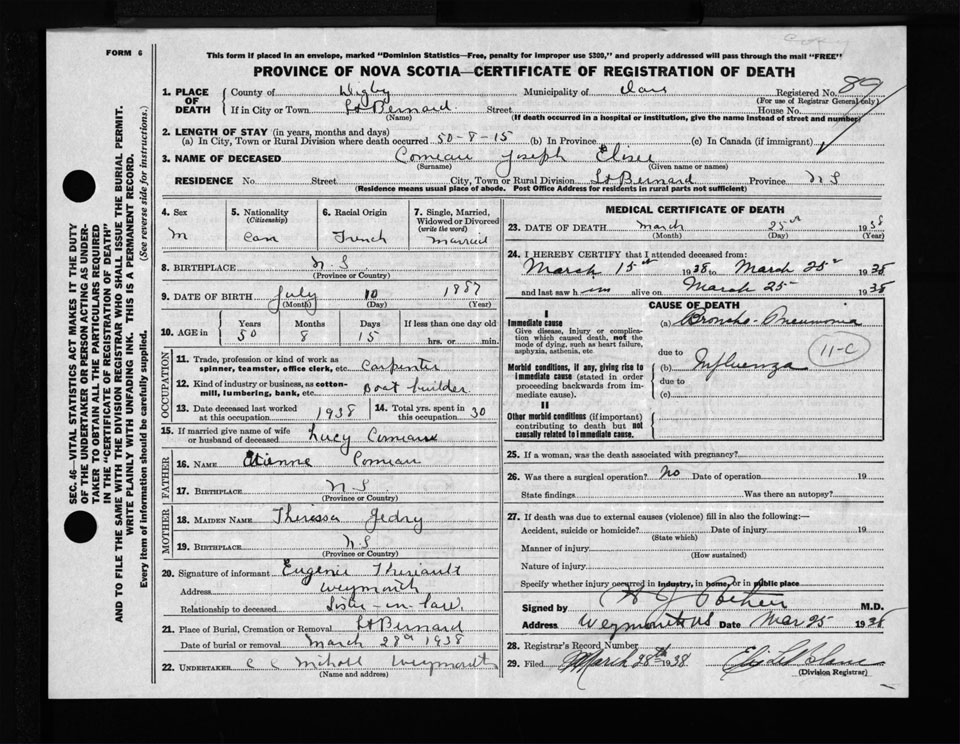 Copy
FORM 6
This form if placed in an envelope, marked "Dominion Statistics—Free, penalty for improper use $300," and properly addressed will pass through the mail "FREE"
PROVINCE OF NOVA SCOTIA—CERTIFICATE OF REGISTRATION OF DEATH
89
SEC. 46—VITAL STATISTICS ACT MAKES IT THE DUTY
OF THE UNDERTAKER OR PERSON ACTING AS UNDER-
TAKER TO OBTAIN ALL THE PARTICULARS REQUIRED
IN THE "CERTIFICATE OF REGISTRATION OF DEATH"
AND TO FILE THE SAME WITH THE DIVISION REGISTRAR WHO SHALL ISSUE THE BURIAL PERMIT.
WRITE PLAINLY WITH UNFADING INK. THIS IS A PERMANENT RECORD.
Every item of information should be carefully supplied. (See reverse side for instructions.)
1. PLACE OF DEATH
County of Digby Municipality of Clare Registered No.
(For use of Registrar General only)
If in City or Town St Bernard Street House No.
(Name) (If death occurred in a hospital or institution, give the name instead of street and number)
2. LENGTH OF STAY (in years, months and days)
(a) In City, Town or Rural Division where death occurred 50-8-15 (b) In Province (c) In Canada (if immigrant)
3. NAME OF DECEASED Comeau Joseph Elisee
(Surname) (Given name or names)
RESIDENCE No Street City, Town or Rural Division St Bernard Province N S
(Residence means usual place of abode. Post Office Address for residents in rural parts not sufficient)
4. Sex
M
5. Nationality
(Citizenship)
Can
6. Racial Origin
French
7. Single, Married,
Widowed or Divorced
(write the word)
Married
8. BIRTHPLACE N.S
(Province or Country)
9. DATE OF BIRTH July 10 1887
(Month) (Day) (Year)
10. AGE in
Years Months Days If less than one day old
50 8 15 hrs. or min.
OCCUPATION
11. Trade, profession or kind of work as
spinner, teamster, office clerk, etc. Carpenter
12. Kind of industry or business, as cotton-
mill, lumbering, bank, etc. Boat builder
13. Date deceased last worked
at this occupation 1938
14. Total yrs. spent in
this occupation 30
15. If married give name of wife
or husband of deceased Lucy Comeau
FATHER
16. NAME Etianne Comeau
17. BIRTHPLACE N.S
(Province or Country)
MOTHER
18. MAIDEN NAME Theressa Gedry
19. BIRTHPLACE N.S
(Province or Country)
20. Signature of informant Eugenie Theriault
Address Weymouth
Relationship to deceased Sister-in-law
21. Place of Burial, Cremation or Removal St Bernard
Date of burial or removal March 28th 1938
22. UNDERTAKER Weymouth
(Name and address)
MEDICAL CERTIFICATE OF DEATH
23. DATE OF DEATH March 25th 1938
(Month) (Day) (Year)
24. I HEREBY CERTIFY that I attended deceased from:
March 15th 1938 to March 25th 1938
and last saw h im alive on March 25 1938
CAUSE OF DEATH
I
Immediate cause (a) Broncho-Pneumonia
Give disease, injury or complica-
tion which caused death, not the
mode of dying, such as heart failure,
asphyxia, asthenia, etc.
due to
Morbid conditions, if any, giving rise to
immediate cause (stated in order
proceeding backwards from im-
mediate cause).
(b) Influenza
11-C
due to
(c)
II
Other morbid conditions (if important)
contributing to death but not
causally related to immediate cause.
25. If a woman, was the death associated with pregnancy?
26. Was there a surgical operation? No Date of operation 19
State findings Was there an autopsy?
27. If death was due to external causes (violence) fill in also the following:—
Accident, suicide or homicide? Date of injury 19
(State which)
Manner of injury
(How sustained)
Nature of injury
Specify whether injury occurred in industry, in home, or in public place
Signed by M.D.
Address Weymouth NS Date Mar 25 1938
28. Registrar's Record Number
29. Filed March 28th 1938
(Division Registrar)